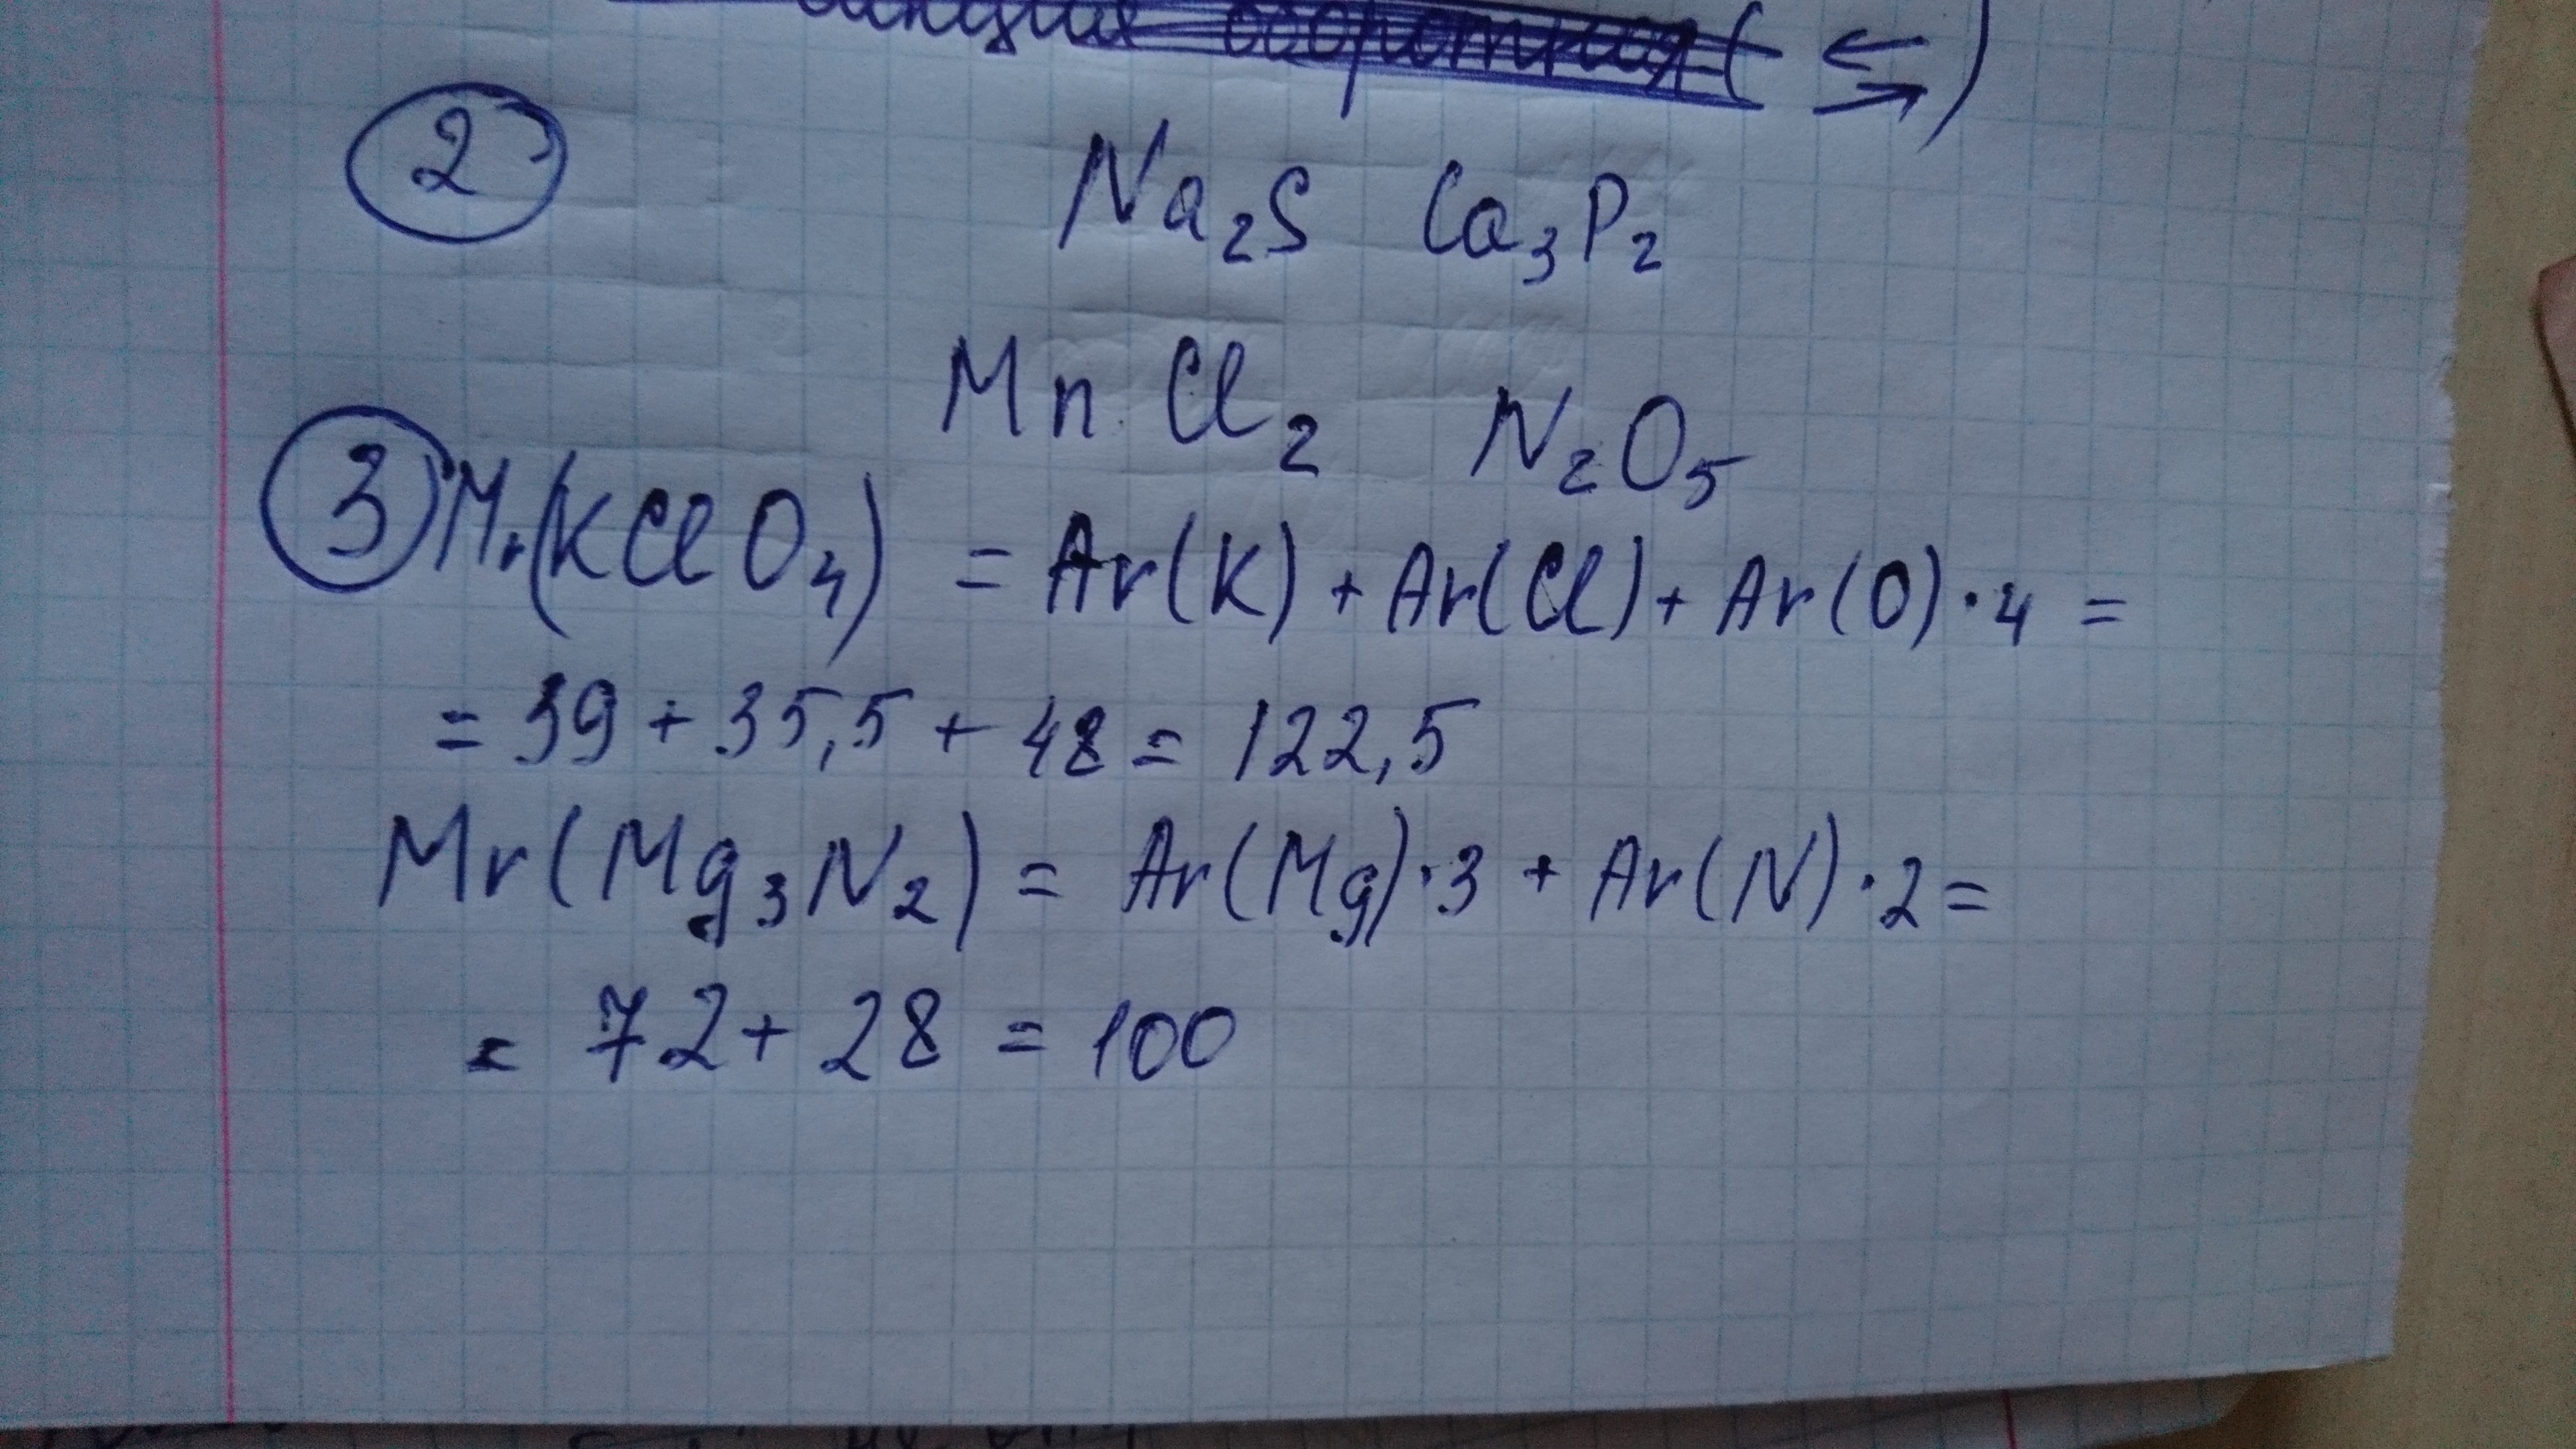 (⇄)
② Na₂S Ca₃P₂
MnCl₂ N₂O₅
③ Mr(KClO₄) = Ar(K) + Ar(Cl) + Ar(O)·4 =
= 39 + 35,5 + 48 = 122,5
Mr(Mg₃N₂) = Ar(Mg)·3 + Ar(N)·2 =
= 72 + 28 = 100